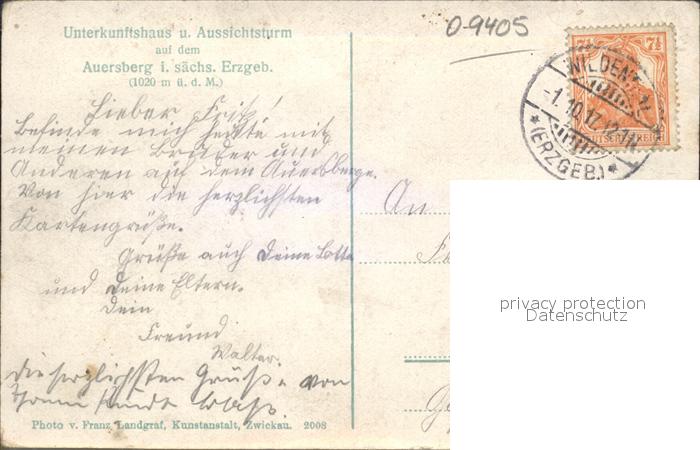 Unterkunftshaus u. Aussichtsturm
auf dem
Auersberg i. sächs. Erzgeb.
(1020 m ü. d. M.)
0-9405
7½ 7½
WILDEN
-1.10.17.
* (ERZGEB.) *
Lieber Fritz!
Befinde mich heute mit
meinen Bruder und
Anderen auf dem Auersberge.
Von hier die herzlichsten
Kartengrüße.
Grüße auch Deine Lotte
und Deine Eltern.
Dein
Freund
Walter.
Die herzlichsten Grüße von
An
privacy protection
Datenschutz
Photo v. Franz Landgraf, Kunstanstalt, Zwickau. 2008